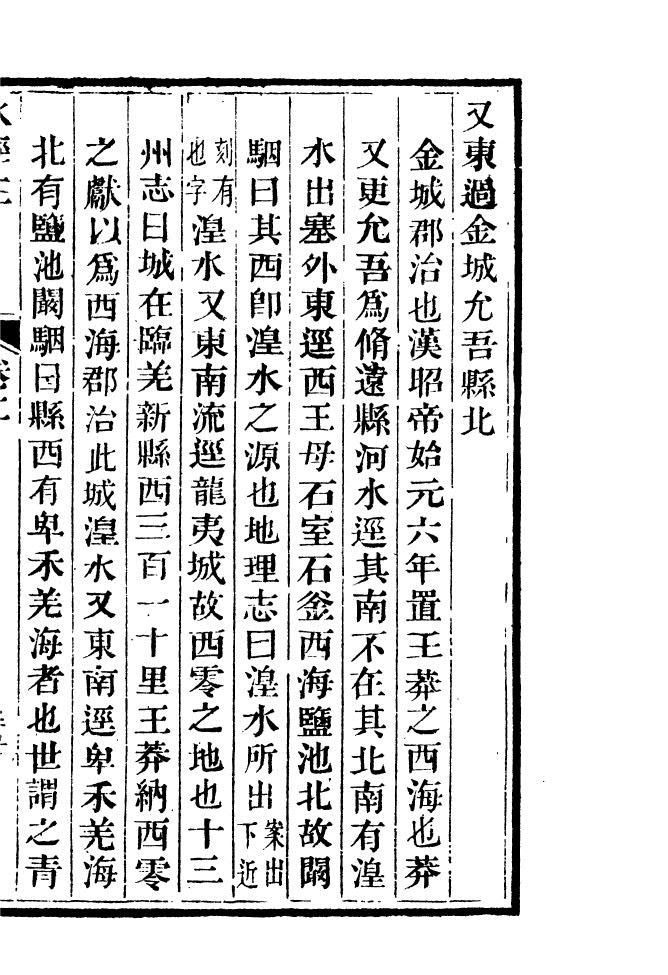 又東過金城允吾縣北
金城郡治也漢昭帝始元六年置王莽之西海也莽
又更允吾為脩遠縣河水逕其南不在其北南有湟
水出塞外東逕西王母石室石釜西海鹽池北故闞
駰曰其西卽湟水之源也地理志曰湟水所出案出下近
刻有也字湟水又東南流逕龍夷城故西零之地也十三
州志曰城在臨羌新縣西三百一十里王莽納西零
之獻以爲西海郡治此城湟水又東南逕卑禾羌海
北有鹽池闞駰曰縣西有卑禾羌海者也世謂之青
水經注
卷二